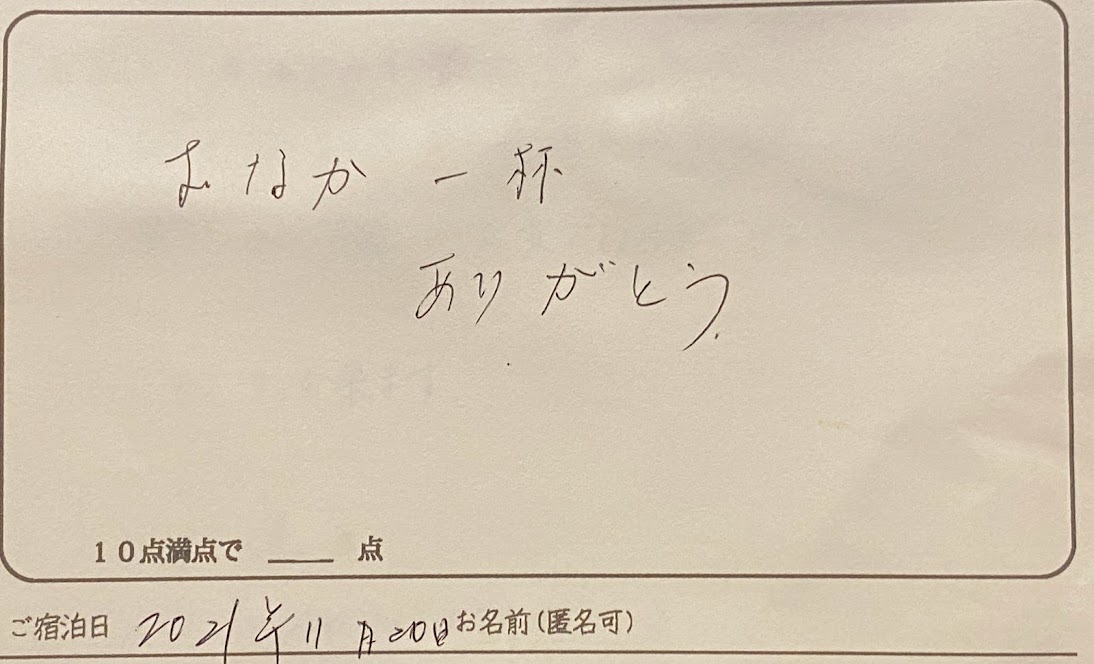 おなか一杯
ありがとう
10点満点で ____ 点
ご宿泊日 2021年11月20日 お名前(匿名可)